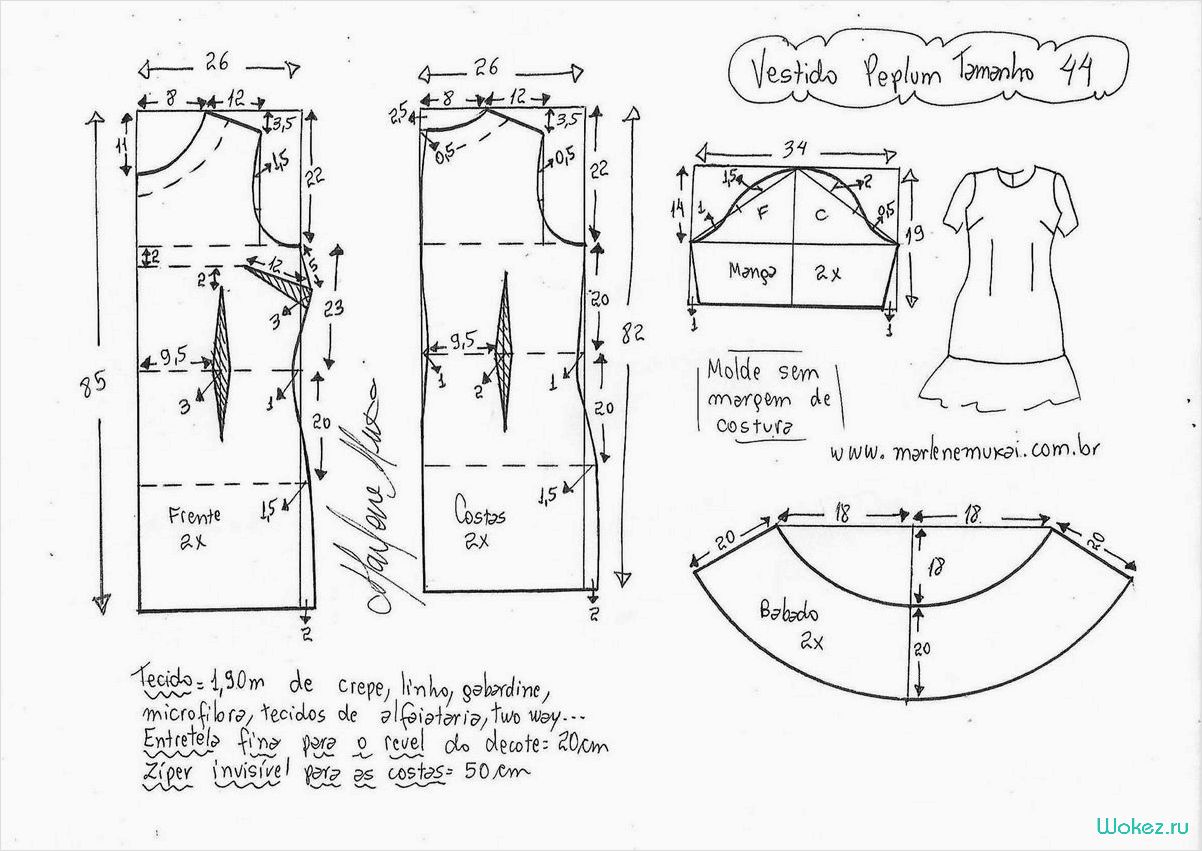 Vestido Peplum Tamanho 44
26
8 12
11
3,5
1,5
22
2
12
5
2
3
23
9,5
3
1
20
85
1,5
Frente
2x
2
26
2,5
8 12
3,5
0,5
0,5
22
20
82
9,5
1
2
1
20
1,5
Costas
2x
2
34
14
1,5
2
1
F C
0,5
19
Manga 2x
1
1
Molde sem
margem de
costura
www.marlenemukai.com.br
18 18
20
20
18
Babado
2x
20
Tecido = 1,90m de crepe, linho, gabardine,
microfibra, tecidos de alfaiataria, two way...
Entretela fina para o revel do decote = 20cm
Zíper invisível para as costas = 50cm
Wokez.ru